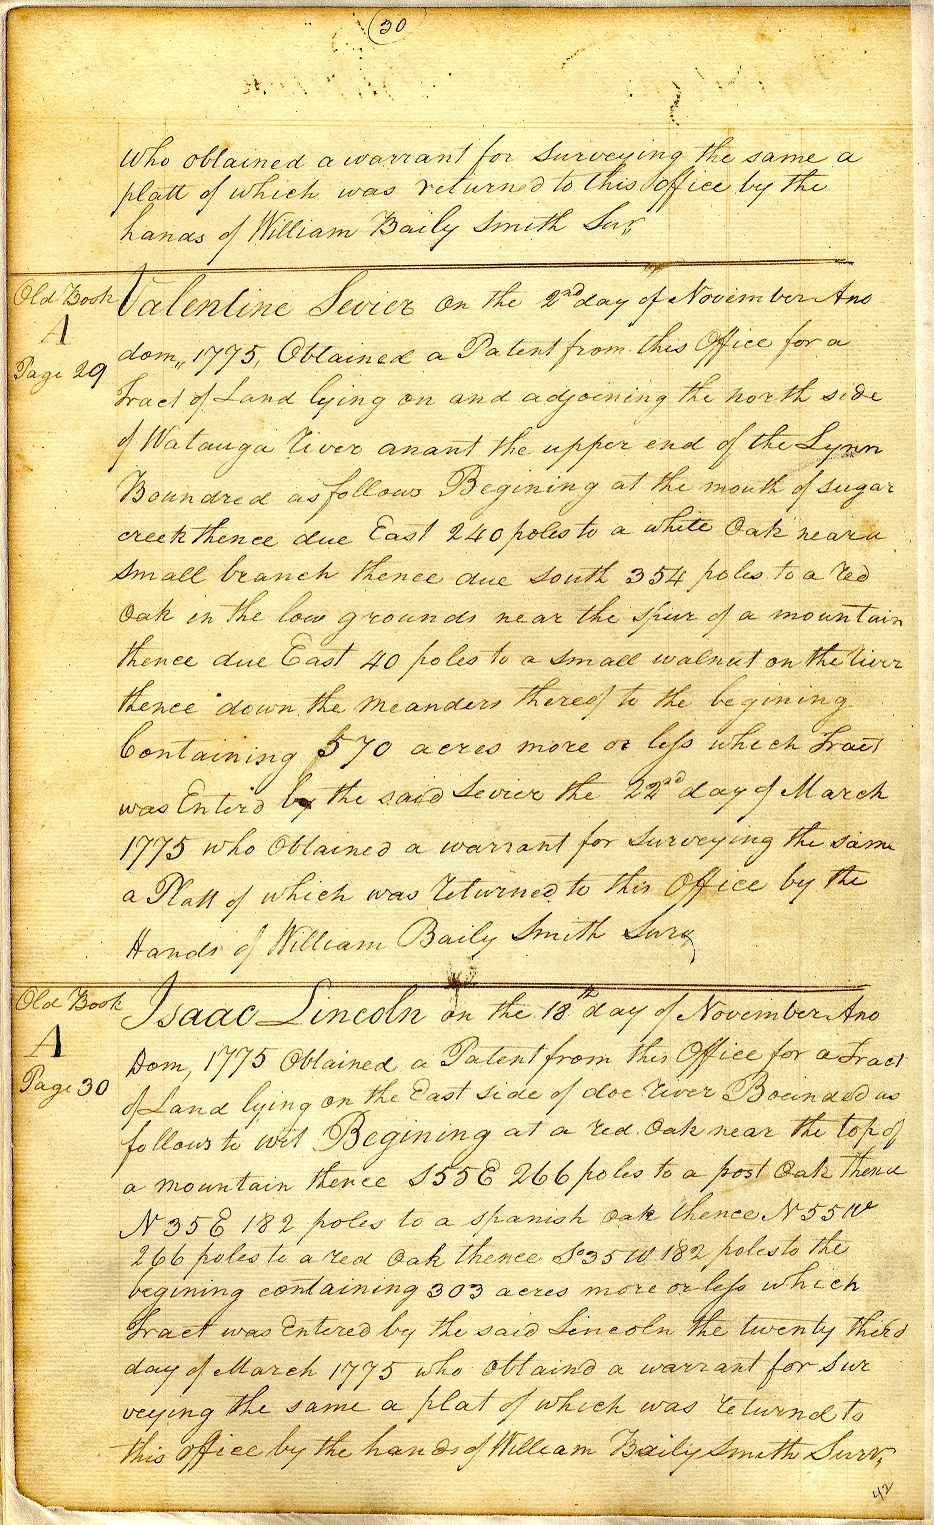 30
who obtained a warrant for surveying the same a
platt of which was returned to this office by the
hands of William Baily Smith Sur,,
Old Book
A
Page 29
Valentine Sevier on the 2nd day of November Ano
dom,, 1775, Obtained a Patent from this Office for a
Tract of Land lying on and adjoening the north side
of Watauga River anant the upper end of the Lynn
Boundred as follows Begining at the mouth of sugar
creek thence due East 240 poles to a white Oak near a
small branch thence due south 354 poles to a red
Oak in the low grounds near the spur of a mountain
thence due East 40 poles to a small walnut on the River
thence down the meanders thereof to the begining
Containing 570 acres more or less which Tract
was Enterd by the said Sevier the 22nd day of March
1775 who Obtained a warrant for surveying the same
a Platt of which was returned to this Office by the
Hands of William Baily Smith Surv
Old Book
A
Page 30
Isaac Lincoln on the 18th day of November Ano
Dom, 1775 Obtained a Patent from this Office for a Tract
of Land lying on the East side of doe River Bounded as
follows to wit Begining at a red Oak near the top of
a mountain thence S55E 266 poles to a post Oak thence
N35E 182 poles to a spanish Oak thence N55W
266 poles to a red Oak thence So35W 182 poles to the
begining containing 303 acres more or less which
Tract was Entered by the said Lincoln the twenty third
day of March 1775 who obtaind a warrant for Sur
veying the same a plat of which was returnd to
this office by the hands of William Baily Smith Surv,
42